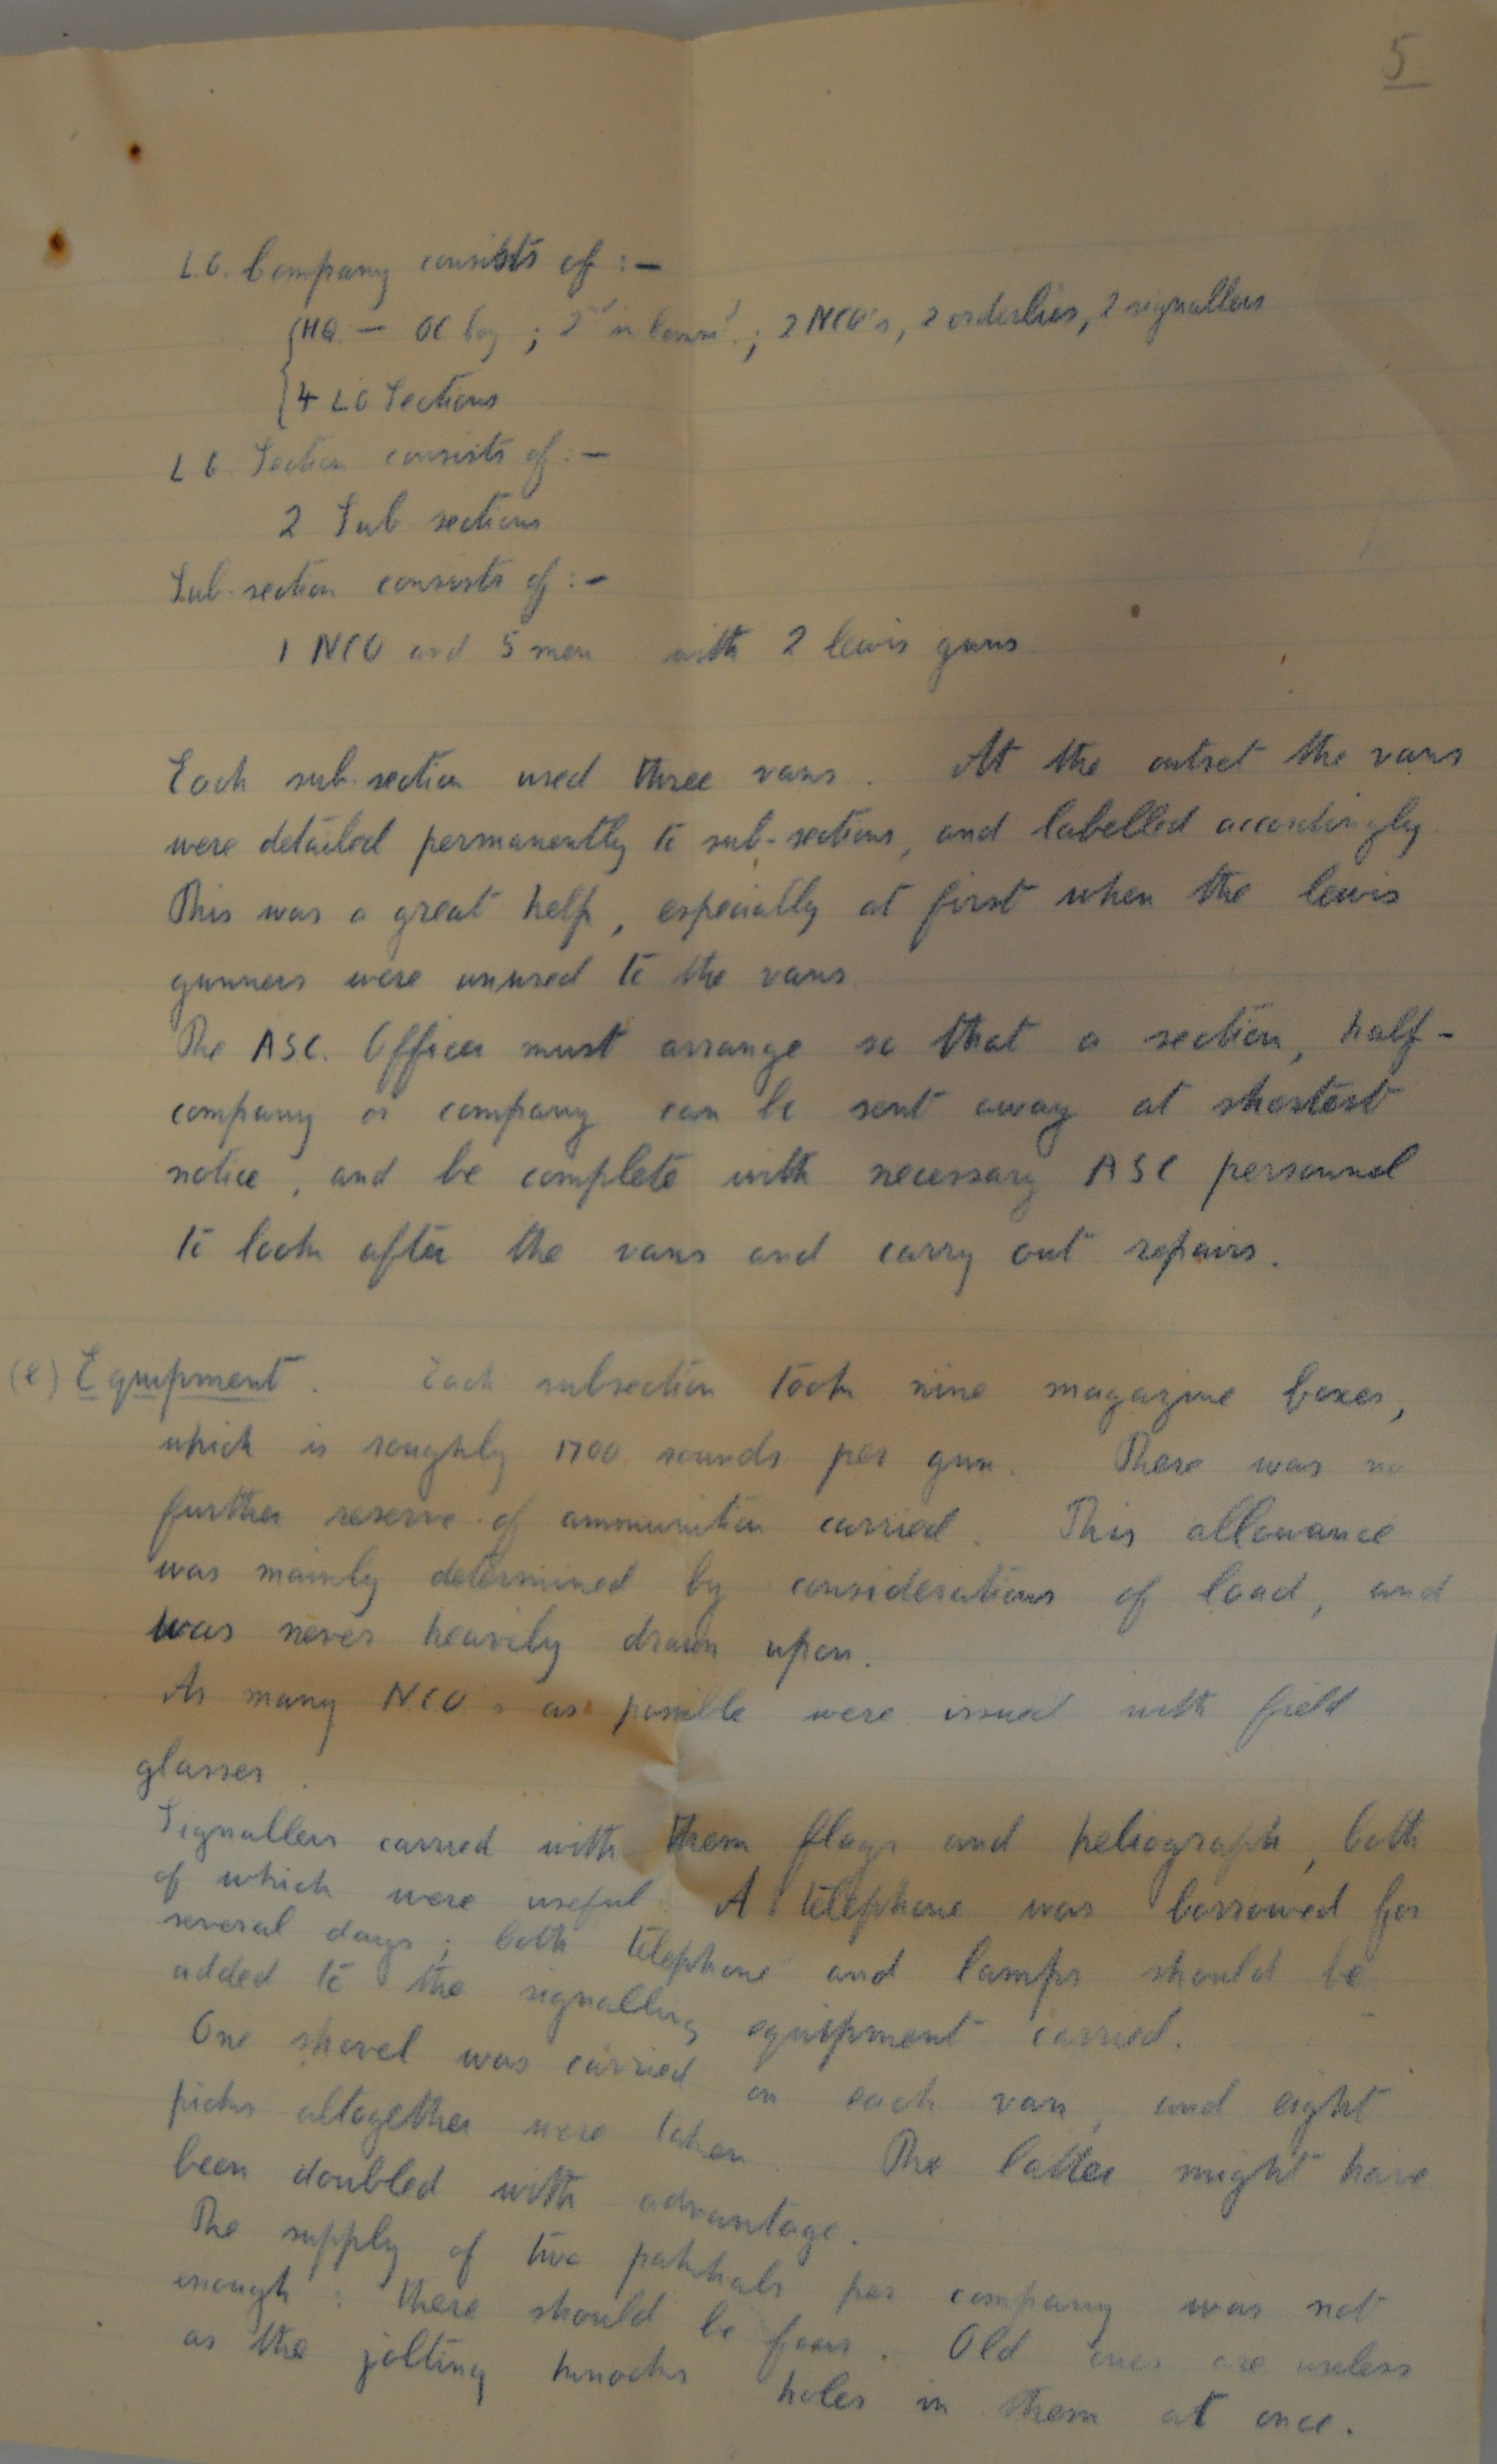 5
L.G. Company consists of :-
HQ. - OC Coy ; 2nd in Comd. ; 2 NCO's, 2 orderlies, 2 signallers
4 LG Sections
L G. Section consists of :-
2 Sub sections
Sub-section consists of :-
1 NCO and 5 men with 2 lewis guns
Each sub-section used three vans. At the outset the vans
were detailed permanently to sub-sections, and labelled accordingly
This was a great help, especially at first when the lewis
gunners were unused to the vans
The ASC. Officer must arrange so that a section, half-
company or company can be sent away at shortest
notice, and be complete with necessary ASC personnel
to look after the vans and carry out repairs.
(e) Equipment. Each subsection took nine magazine boxes,
which is roughly 1700 rounds per gun. There was no
further reserve of ammunition carried. This allowance
was mainly determined by considerations of load, and
was never heavily drawn upon.
As many N.C.O's as possible were issued with field
glasses.
Signallers carried with them flags and heliograph, both
of which were useful. A telephone was borrowed for
several days; both telephone and lamps should be
added to the signalling equipment carried.
One shovel was carried on each van, and eight
picks altogether were taken. The latter might have
been doubled with advantage.
The supply of two pakhals per company was not
enough : there should be four. Old ones are useless
as the jolting knocks holes in them at once.